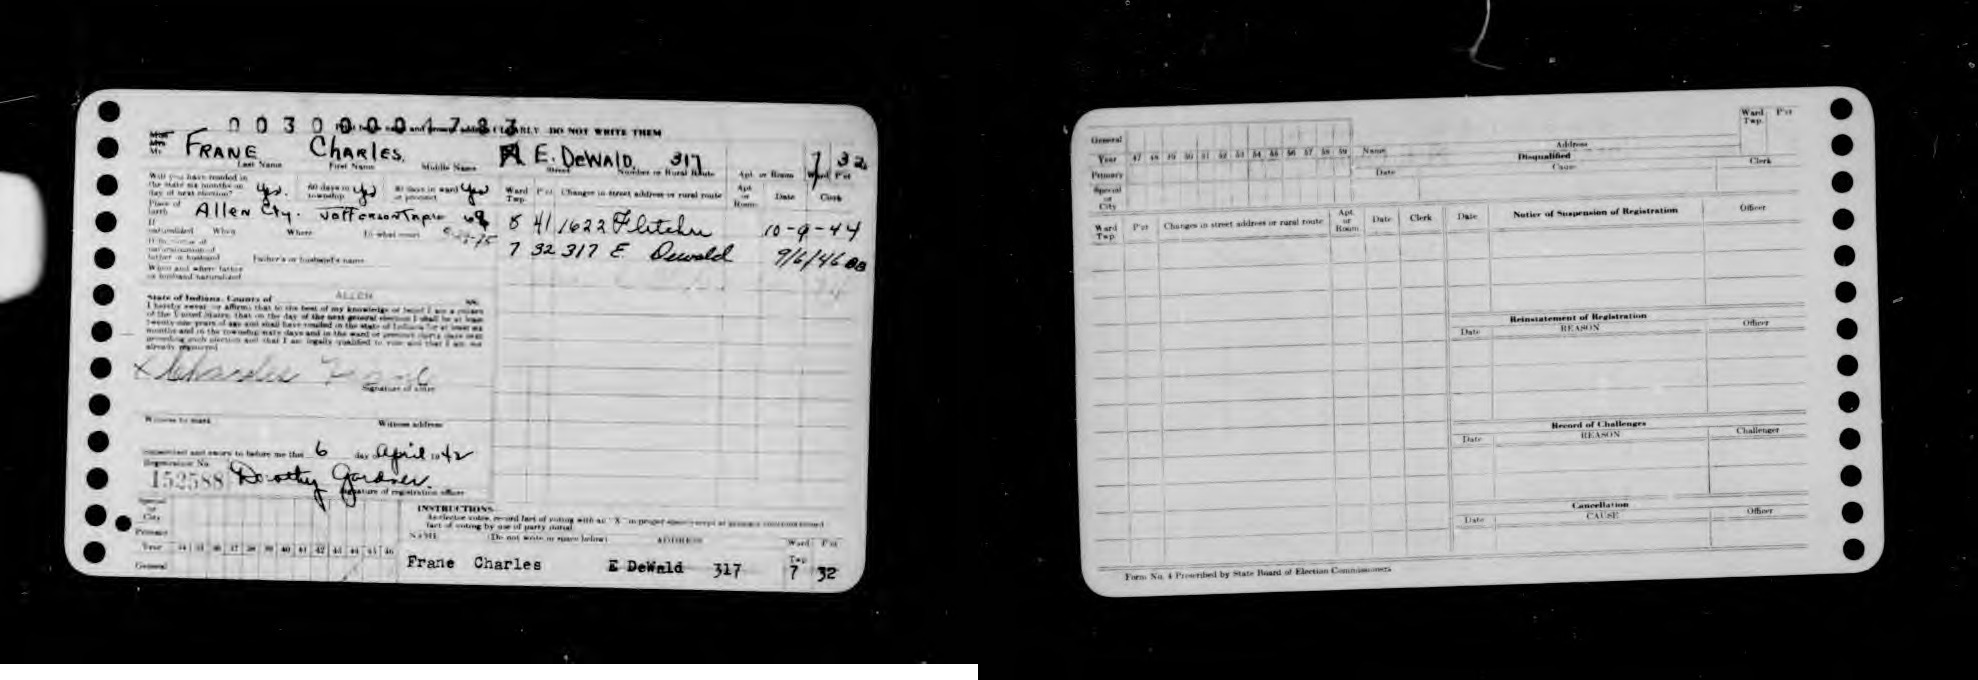 0030000 4783
Print name and present address CLEARLY DO NOT WRITE THEM
Miss
Mrs
Mr. FRANE CHARLES. E. DeWALD. 317 7 32
Last Name First Name Middle Name Street Number or Rural Route Apt. or Room Ward P'ct
Will you have resided in
the state six months on
day of next election? Yes. 60 days in township Yes 30 days in ward or precinct Yes
Ward Twp. P'ct Changes in street address or rural route Apt. or Room Date Clerk
Place of birth Allen Cty. Jefferson
8 41 1622 Fletcher 10-9-44
If naturalized When Where In what court
7 32 317 E Dewald 9/6/46
father or husband Father's or husband's name
When and where father
or husband naturalized
State of Indiana, County of ALLEN ss.
I hereby swear or affirm that to the best of my knowledge or belief I am a citizen
of the United States, that on the day of the next general election I shall be at least
twenty-one years of age and shall have resided in the state of Indiana for at least six
months and in the township sixty days and in the ward or precinct thirty days next
preceding such election and that I am legally qualified to vote and that I am not
already registered
Charles Frane
Signature of voter
Witness to mark Witness address
Subscribed and sworn to before me this 6 day April 1942
Registration No.
152588 Dorothy Gardner.
Signature of registration officer
Special or City
Primary
Year 34 35 36 37 38 39 40 41 42 43 44 45 46
General
INSTRUCTIONS
fact of voting by use of party initial
NAME (Do not write or move below) ADDRESS Ward Twp P'ct
Frane Charles E DeWald 317 7 32
General
Year 47 48 49 50 51 52 53 54 55 56 57 58 59
Primary
Special or City
Name Address Ward Twp. P'ct
Disqualified
Date Cause Clerk
Ward Twp. P'ct Changes in street address or rural route Apt. or Room Date Clerk
Date Notice of Suspension of Registration Officer
Reinstatement of Registration
Date REASON Officer
Record of Challenges
Date REASON Challenger
Cancellation
Date CAUSE Officer
Form No. 4 Prescribed by State Board of Election Commissioners